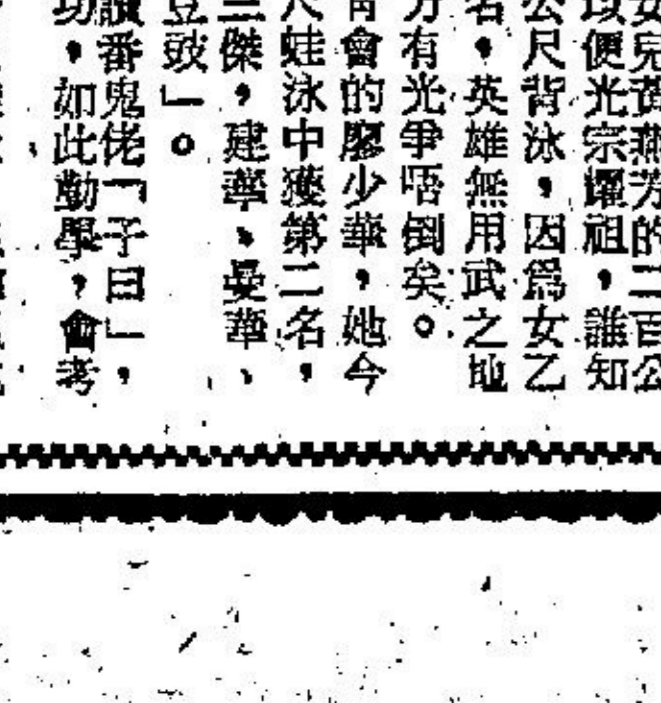 女兒黃燕芳的二百公
以便光宗耀祖，誰知
公尺背泳，因為女乙
名，英雄無用武之地
方有光爭唔倒矣。
青會的廖少華，她今
尺蛙泳中獲第二名，
三傑，建華、曼華、
豆豉」。
讀番鬼佬「子曰」，
功，如此勤學，會考